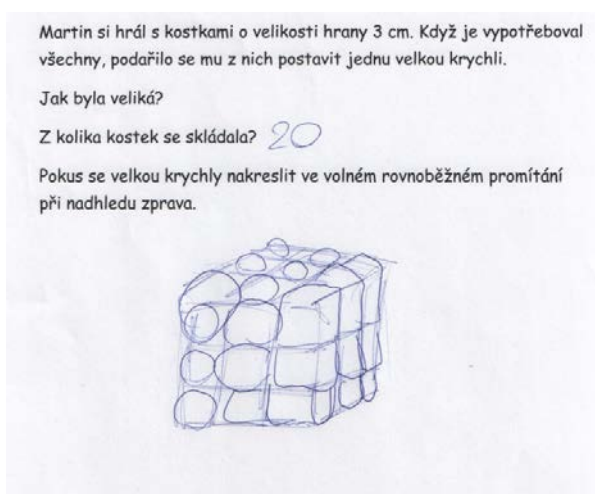 Martin si hrál s kostkami o velikosti hrany 3 cm. Když je vypotřeboval
všechny, podařilo se mu z nich postavit jednu velkou krychli.
Jak byla veliká?
Z kolika kostek se skládala? 20
Pokus se velkou krychly nakreslit ve volném rovnoběžném promítání
při nadhledu zprava.